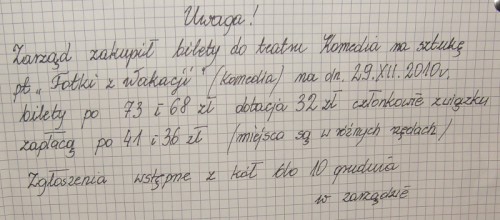 Uwaga!
Zarząd zakupił bilety do teatru Komedia na sztukę
pt. „Fotki z wakacji" (komedia) na dn. 29.XII.2010r.
bilety po 73 i 68 zł dotacja 32 zł członkowie związku
zapłacą po 41 i 36 zł (miejsca są w różnych rzędach)
Zgłoszenia wstępne z kół do 10 grudnia
w zarządzie